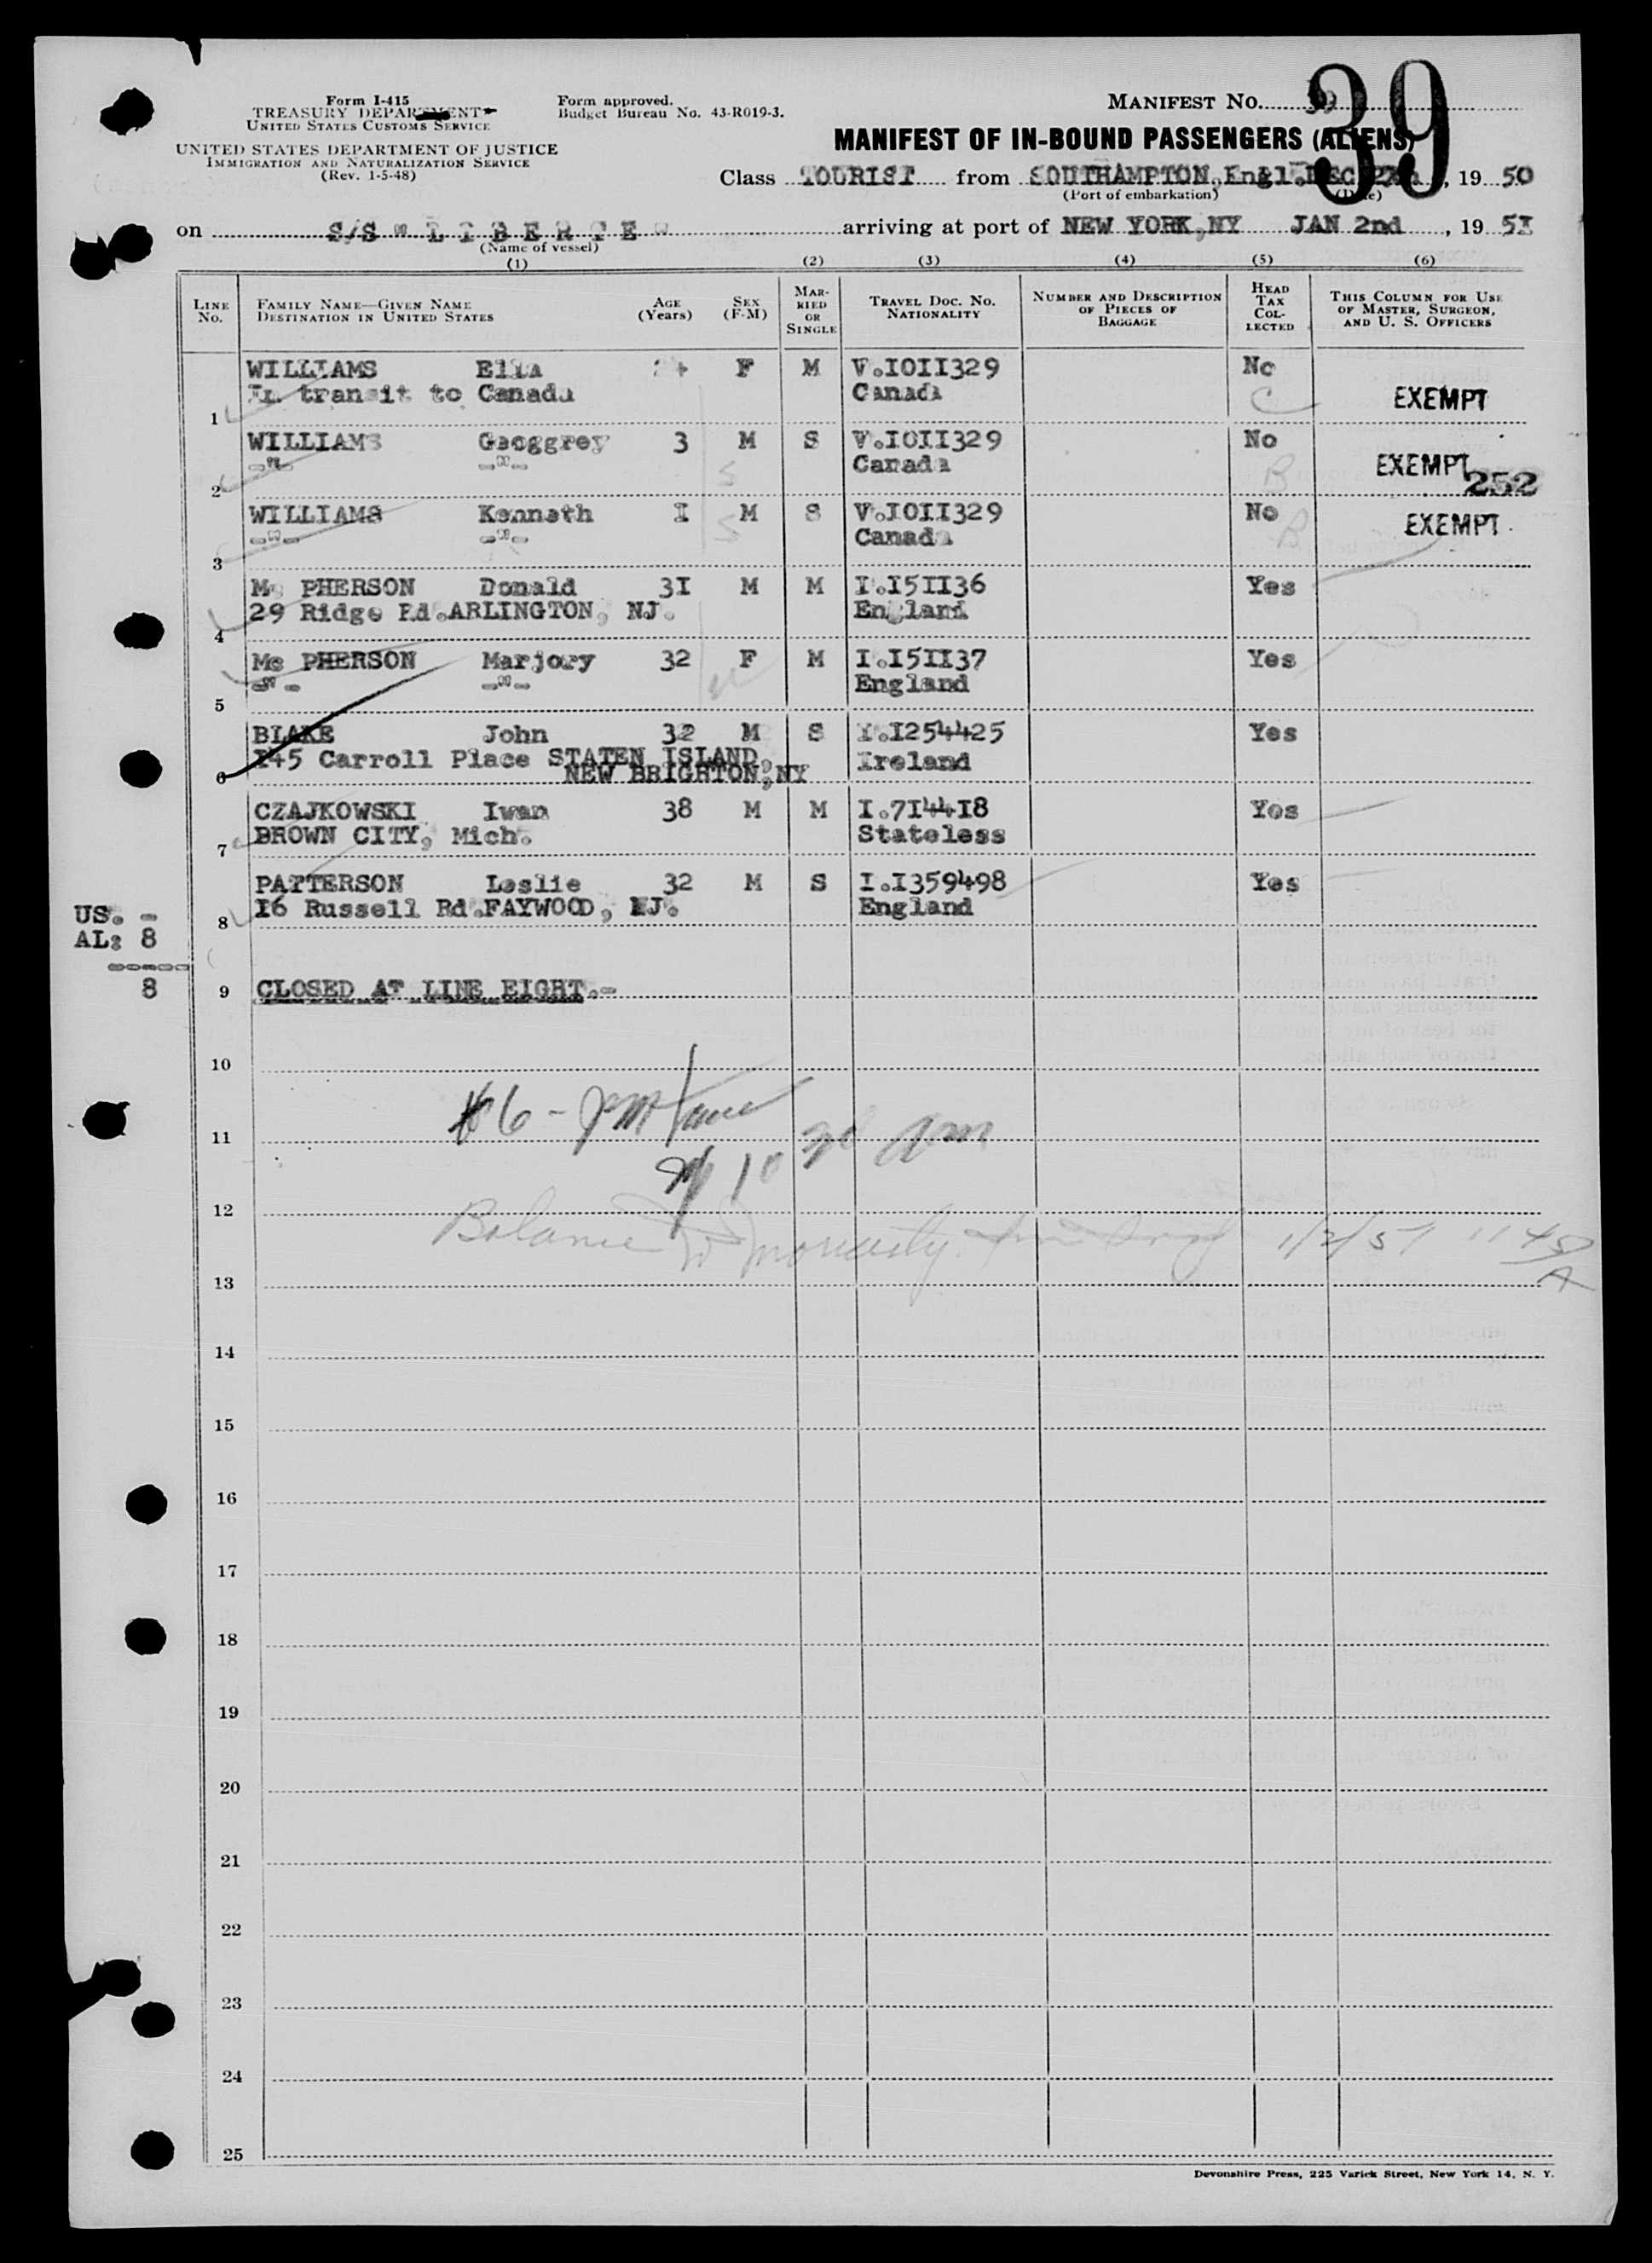 Form I-415
TREASURY DEPARTMENT
UNITED STATES CUSTOMS SERVICE
UNITED STATES DEPARTMENT OF JUSTICE
IMMIGRATION AND NATURALIZATION SERVICE
(Rev. 1-5-48)
Form approved.
Budget Bureau No. 43-R019-3.
MANIFEST No. 39
39
MANIFEST OF IN-BOUND PASSENGERS (ALIENS)
Class TOURIST from SOUTHAMPTON, Engl. DEC , 19 50
(Port of embarkation) (Date)
on S/S " L I B E R T E " arriving at port of NEW YORK, NY JAN 2nd , 19 5I
(Name of vessel)
(1) (2) (3) (4) (5) (6)
LINE No. FAMILY NAME—GIVEN NAME DESTINATION IN UNITED STATES AGE (Years) SEX (F-M) MARRIED OR SINGLE TRAVEL DOC. No. NATIONALITY NUMBER AND DESCRIPTION OF PIECES OF BAGGAGE HEAD TAX COLLECTED THIS COLUMN FOR USE OF MASTER, SURGEON, AND U. S. OFFICERS
WILLIAMS Ella F M V.IOII329 No
1 In transit to Canada Canada C EXEMPT
WILLIAMS Geoggrey 3 M S V.IOII329 No
2 -"- -"- S Canada B EXEMPT 252
WILLIAMS Kenneth I M S V.IOII329 No
3 -"- -"- S Canada B EXEMPT
Mc PHERSON Donald 3I M M I.I5II36 Yes
4 29 Ridge Rd.ARLINGTON, NJ. England
Mc PHERSON Marjory 32 F M I.I5II37 Yes
5 -"- -"- England
BLAKE John 32 M S I254425 Yes
6 I45 Carroll Place STATEN ISLAND, Ireland
NEW BRIGHTON, NY
CZAJKOWSKI Iwan 38 M M I.7I44I8 Yes
7 BROWN CITY, Mich. Stateless
PATTERSON Leslie 32 M S I.I359498 Yes
8 I6 Russell Rd.FAYWOOD, NJ. England
US. -
AL: 8
-----
8
9 CLOSED AT LINE EIGHT.-
10
#6 -
11
10 30 am
12
Balance to Moriarty 1/2/51 11 45 A
13
14
15
16
17
18
19
20
21
22
23
24
25
Devonshire Press, 225 Varick Street, New York 14, N. Y.